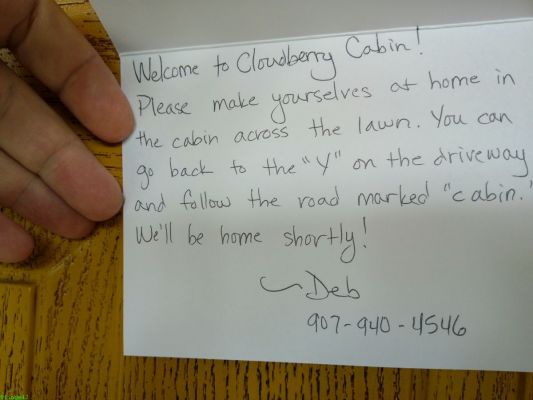 Welcome to Cloudberry Cabin!
Please make yourselves at home in
the cabin across the lawn. You can
go back to the "Y" on the driveway
and follow the road marked "cabin."
We'll be home shortly!
~Deb
907-940-4546